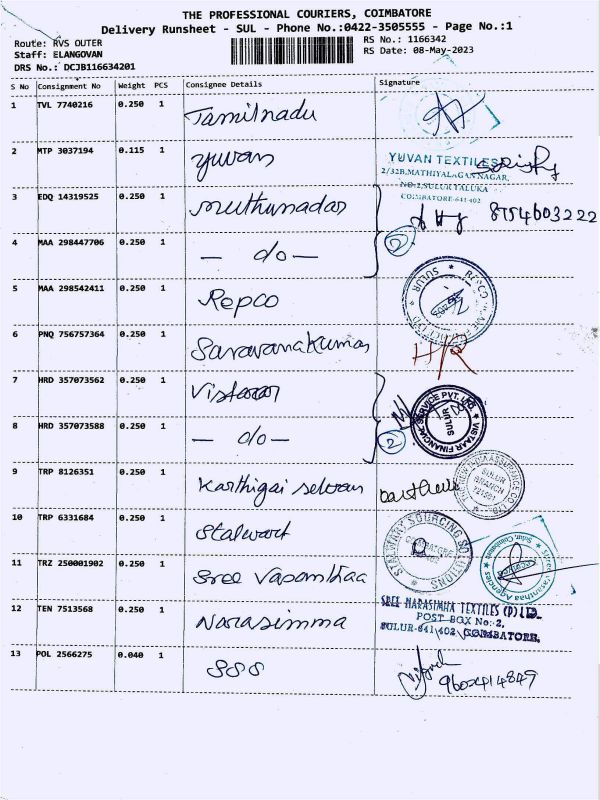 THE PROFESSIONAL COURIERS, COIMBATORE
Delivery Runsheet - SUL - Phone No.:0422-3505555 - Page No.:1
Route: RVS OUTER
Staff: ELANGOVAN
DRS No.: DCJB116634201
RS No.: 1166342
RS Date: 08-May-2023
S No Consignment No Weight PCS Consignee Details Signature
1 TVL 7740216 0.250 1 Tamilnadu
2 MTP 3037194 0.115 1 Yuvan
YUVAN TEXTILES
2/32B, MATHIYALAGAN NAGAR,
NO:2, SULUR TALUKA
COIMBATORE-641 402
3 EDQ 14319525 0.250 1 Muthunadar 8754603222
4 MAA 298447706 0.250 1 — do — 2
5 MAA 298542411 0.250 1 Repco
REPCO SULUR
6 PNQ 756757364 0.250 1 Saravanakumar
7 HRD 357073562 0.250 1 Vistaar
VISTAAR FINANCIAL SERVICE PVT. LTD. SULUR
8 HRD 357073588 0.250 1 — do — 2
9 TRP 8126351 0.250 1 Karthigai selvan
SULUR BRANCH
10 TRP 6331684 0.250 1 Stalwart
STALWART SOURCING SOLUTIONS
11 TRZ 250001902 0.250 1 Sree Vasanthaa
Sree Vasanthaa Agencies Sulur, Coimbatore
12 TEN 7513568 0.250 1 Narasimma
SREE NARASIMHA TEXTILES (P) LTD.
POST BOX No: 2,
SULUR-641 402 COIMBATORE.
13 POL 2566275 0.040 1 SSS
9602414847